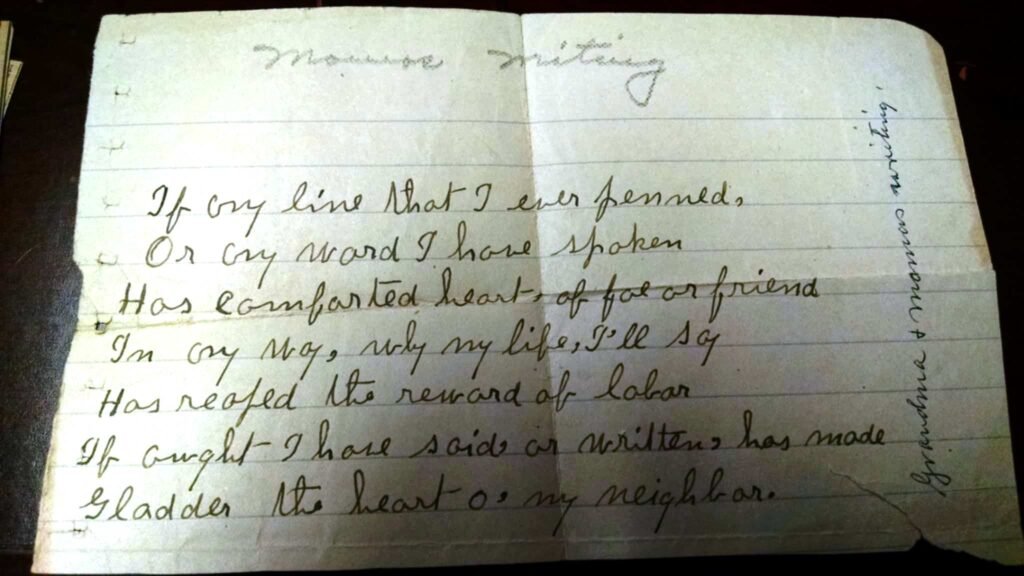 Mamas writing
If any line that I ever penned,
Or any word I have spoken
Has comforted heart, of foe or friend
In any way, why my life, I'll say
Has reaped the reward of labor
If aught I have said, or written, has made
Gladder the heart o' my neighbor.
Grandma & mamas writing.